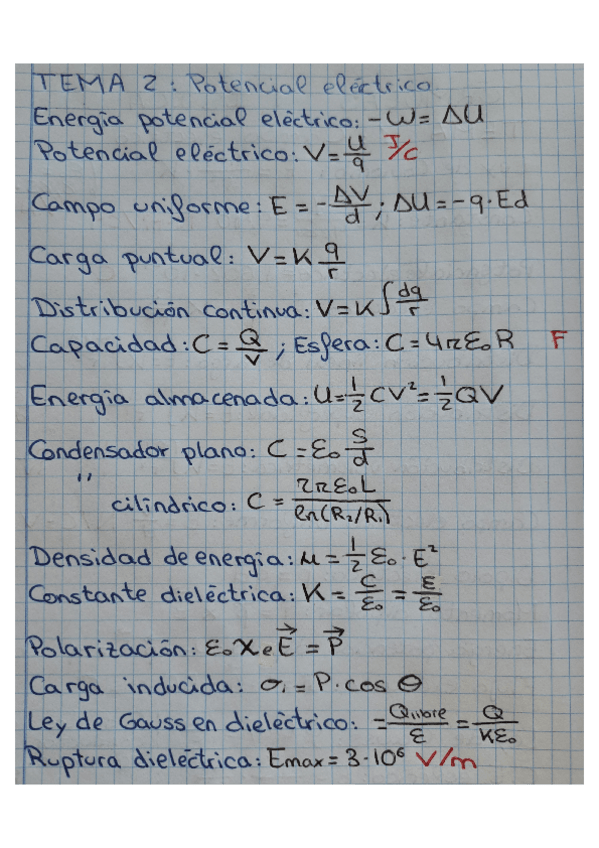 TEMA 2: Potencial eléctrico
Energía potencial eléctrico: -W = ΔU
Potencial eléctrico: V = U/q J/C
Campo uniforme: E = - ΔV/d ; ΔU = -q·Ed
Carga puntual: V = K q/r
Distribución continua: V = K ∫ dq/r
Capacidad: C = Q/V ; Esfera: C = 4πε₀R F
Energía almacenada: U = 1/2 CV² = 1/2 QV
Condensador plano: C = ε₀ S/d
" cilíndrico: C = 2πε₀L / ln(R₂/R₁)
Densidad de energía: μ = 1/2 ε₀ · E²
Constante dieléctrica: K = C/ε₀ = ε/ε₀
Polarización: ε₀ χe E⃗ = P⃗
Carga inducida: σᵢ = P·cos θ
Ley de Gauss en dieléctrico: = Qlibre/ε = Q/Kε₀
Ruptura dieléctrica: Emax = 3·10⁶ V/m